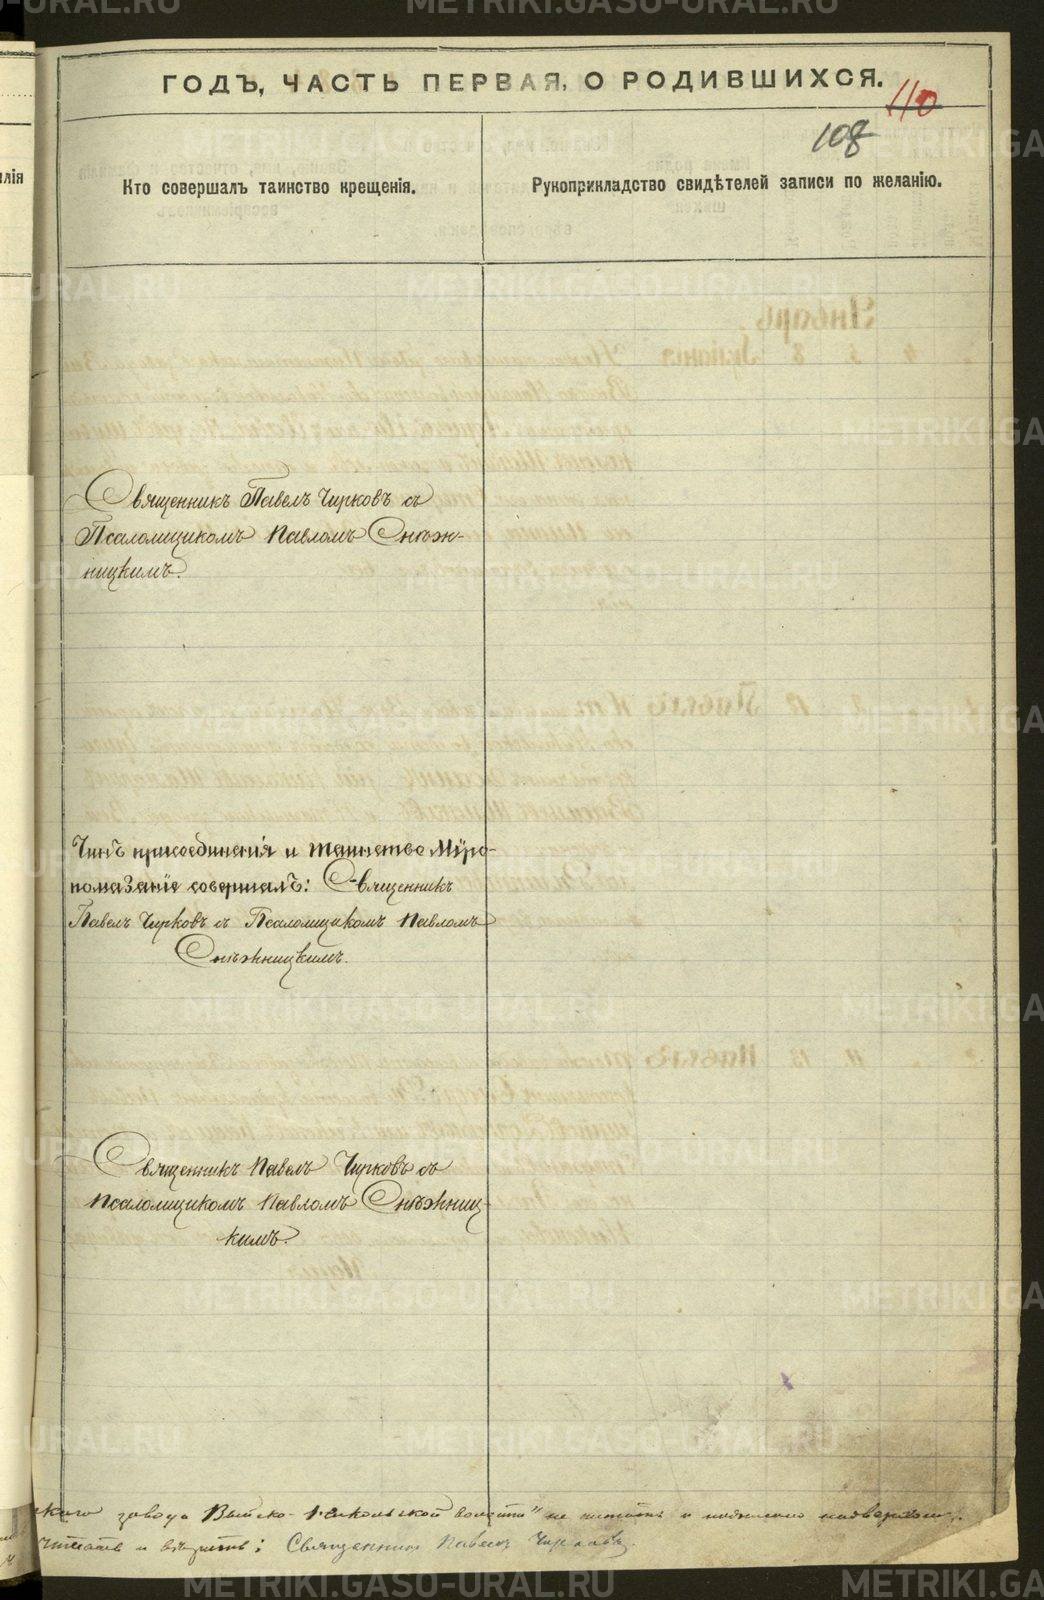 ГОДЪ, ЧАСТЬ ПЕРВАЯ, О РОДИВШИХСЯ.
110
108
Кто совершалъ таинство крещенія.
Рукоприкладство свидѣтелей записи по желанію.
Священникъ Павелъ Чирковъ съ
Псаломщикомъ Павломъ Снѣж-
ницкимъ.
Чинъ присоединенія и таинство Мѵро-
помазаніе совершалъ: Священникъ
Павелъ Чирковъ съ Псаломщикомъ Павломъ
Снѣжницкимъ.
Священникъ Павелъ Чирковъ съ
Псаломщикомъ Павломъ Снѣжниц-
кимъ.
завода Выйско-Никольской волости" не читать и
читать и вѣрить: Священникъ Павелъ Чирковъ.
METRIKI.GASO-URAL.RU